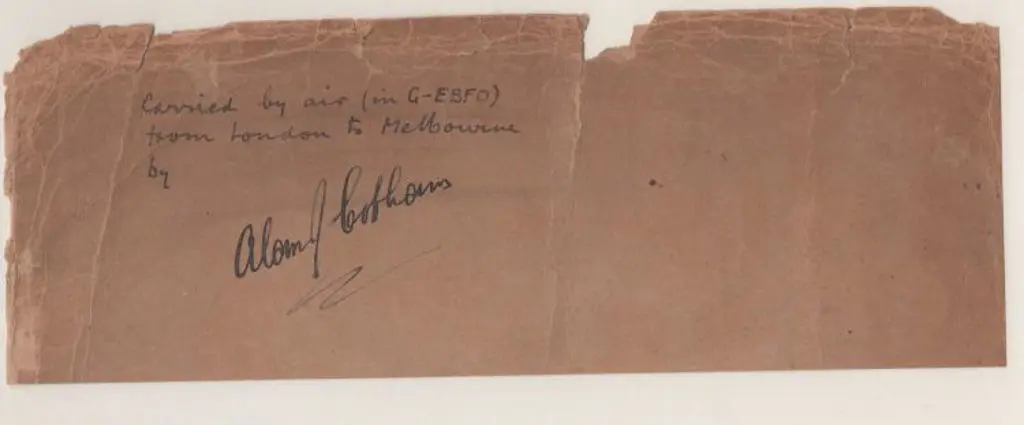 Carried by air (in G-EBFO)
from London to Melbourne
by
Alan J Cobham